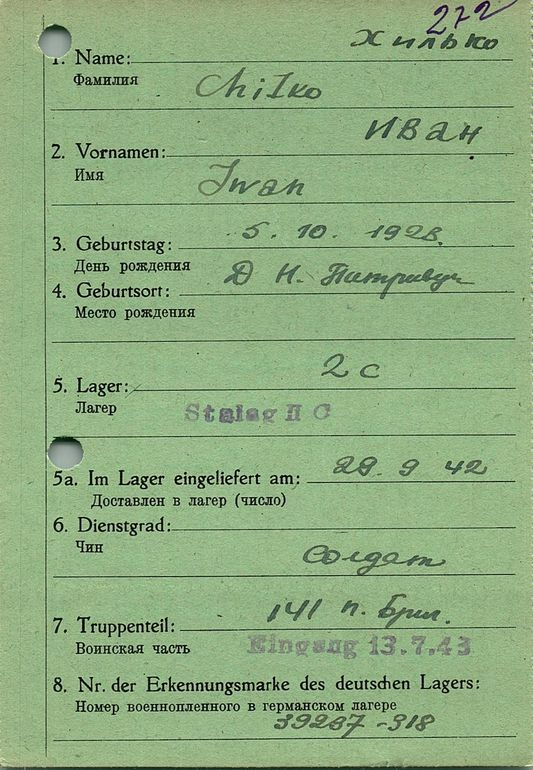 272
Хилько
1. Name:
Фамилия
Chilko
Иван
2. Vornamen:
Имя
Iwan
3. Geburtstag: 5. 10. 1928.
День рождения
4. Geburtsort: Д Н.
Место рождения
2 с
5. Lager:
Лагер
Stalag II C
5a. Im Lager eingeliefert am: 29. 9 42
Доставлен в лагер (число)
6. Dienstgrad:
Чин
Солдат
141 п.
7. Truppenteil:
Воинская часть
Eingang 13.7.43
8. Nr. der Erkennungsmarke des deutschen Lagers:
Номер военнопленного в германском лагере
39267-318